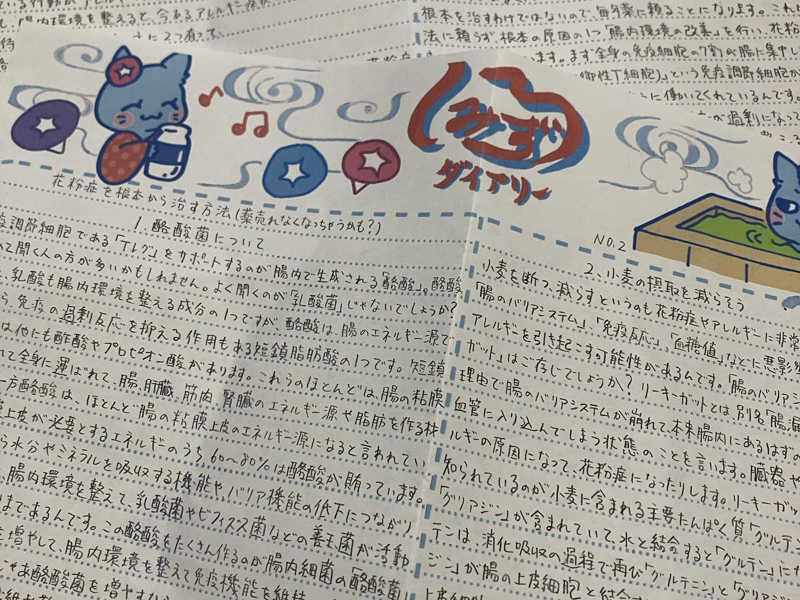 腸内環境を整えると、今あるアレルギー疾
根本を治すわけではないので、毎年薬に頼ることになります。これ
法に頼らず、根本の原因の1つ「腸内環境の改善」を行い、花粉
ます。まず全身の免疫細胞の7割が腸に集中し
制御性T細胞)」という免疫調節細胞が
に働いてくれているんです。
が過剰になって
みずダイアリー
花粉症を根本から治す方法(薬売れなくなっちゃうかも?)
1. 酪酸菌について
調節細胞である「Tレグ」をサポートするのが腸内で生成される「酪酸」。酪酸
て聞く人の方が多いかもしれません。よく聞くのが「乳酸菌」じゃないでしょうか?
、乳酸も腸内環境を整える成分の1つですが、酪酸は、腸のエネルギー源で
ら、免疫の過剰反応を抑える作用もある短鎖脂肪酸の1つです。短鎖
は他にも酢酸やプロピオン酸があります。これらのほとんどは、腸の粘膜
て全身に運ばれて、腸、肝臓、筋肉、腎臓のエネルギー源や脂肪を作る材
一方酪酸は、ほとんど腸の粘膜上皮のエネルギー源になると言われてい
上皮が必要とするエネルギーのうち、60〜80%は酪酸が賄っています。
ら水分やミネラルを吸収する機能や、バリア機能の低下につながり
、腸内環境を整えて、乳酸菌やビフィズス菌などの善玉菌が活動
まであるんです。この酪酸をたくさん作るのが腸内細菌の「酪酸菌」
を増やして、腸内環境を整えて免疫機能を維持
酪酸菌を増やす
NO.2
2. 小麦の摂取を減らそう
小麦を断つ、減らすというのも花粉症やアレルギーに非常
「腸のバリアシステム」、「免疫反応」、「血糖値」などに悪影
アレルギーを引き起こす可能性があるんです。「腸のバリア
ガット」はご存じでしょうか? リーキーガットとは、別名「腸漏
理由で腸のバリアシステムが崩れて、本来腸内にあるはずの
血管に入り込んでしまう状態のことを言います。臓器や
ルギーの原因になって、花粉症になったりします。リーキーガッ
知られているのが小麦に含まれる主要たんぱく質「グルテ
「グリアジン」が含まれていて、水と結合すると「グルテン」にな
テンは、消化吸収の過程で再び「グルテニン」と「グリア
ジン」が腸の上皮細胞と結合